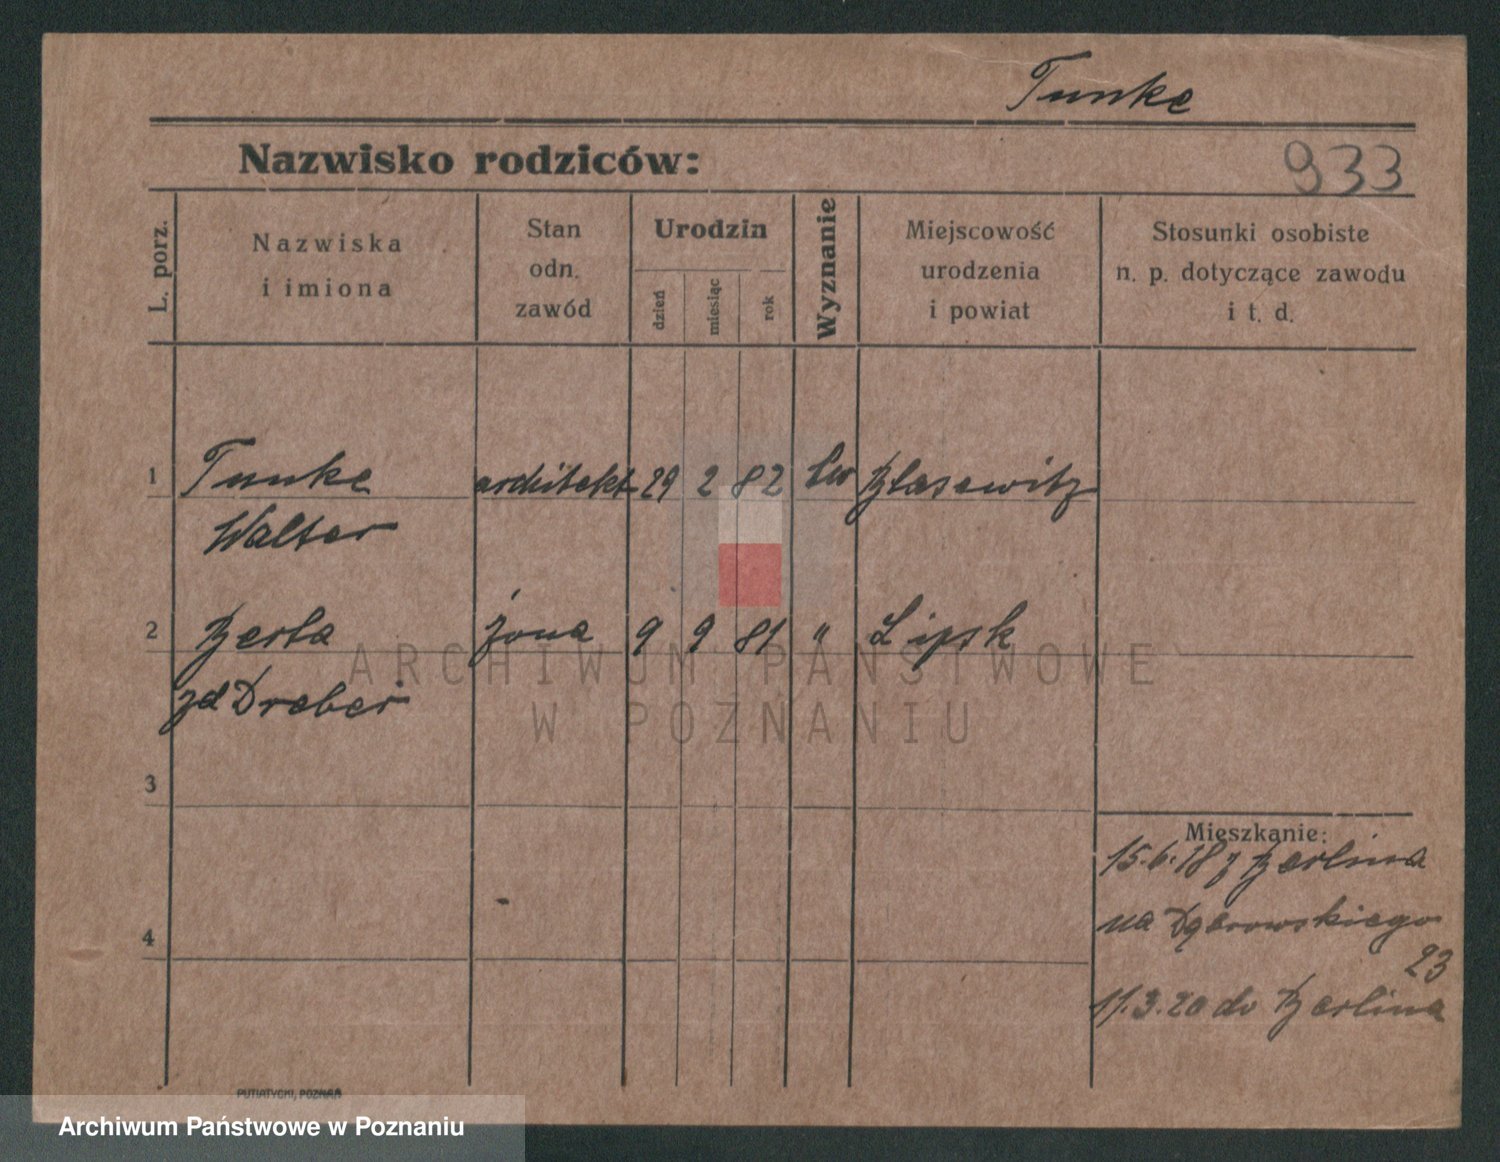 Tunke
Nazwisko rodziców:
933
L. porz.
Nazwiska
i imiona
Stan
odn.
zawód
Urodzin
dzień
miesiąc
rok
Wyznanie
Miejscowość
urodzenia
i powiat
Stosunki osobiste
n. p. dotyczące zawodu
i t. d.
1 Tunke architekt 29 2 82 Ew Blasewitz
Walter
2 Berta żona 9 9 81 " Lipsk
zd Dreber
3
4
Mieszkanie:
15.6.18 z Berlina
na Dąbrowskiego
23
11.3.20 do Berlina
PUTIATYCKI, POZNAŃ
ARCHIWUM PAŃSTWOWE
W POZNANIU
Archiwum Państwowe w Poznaniu